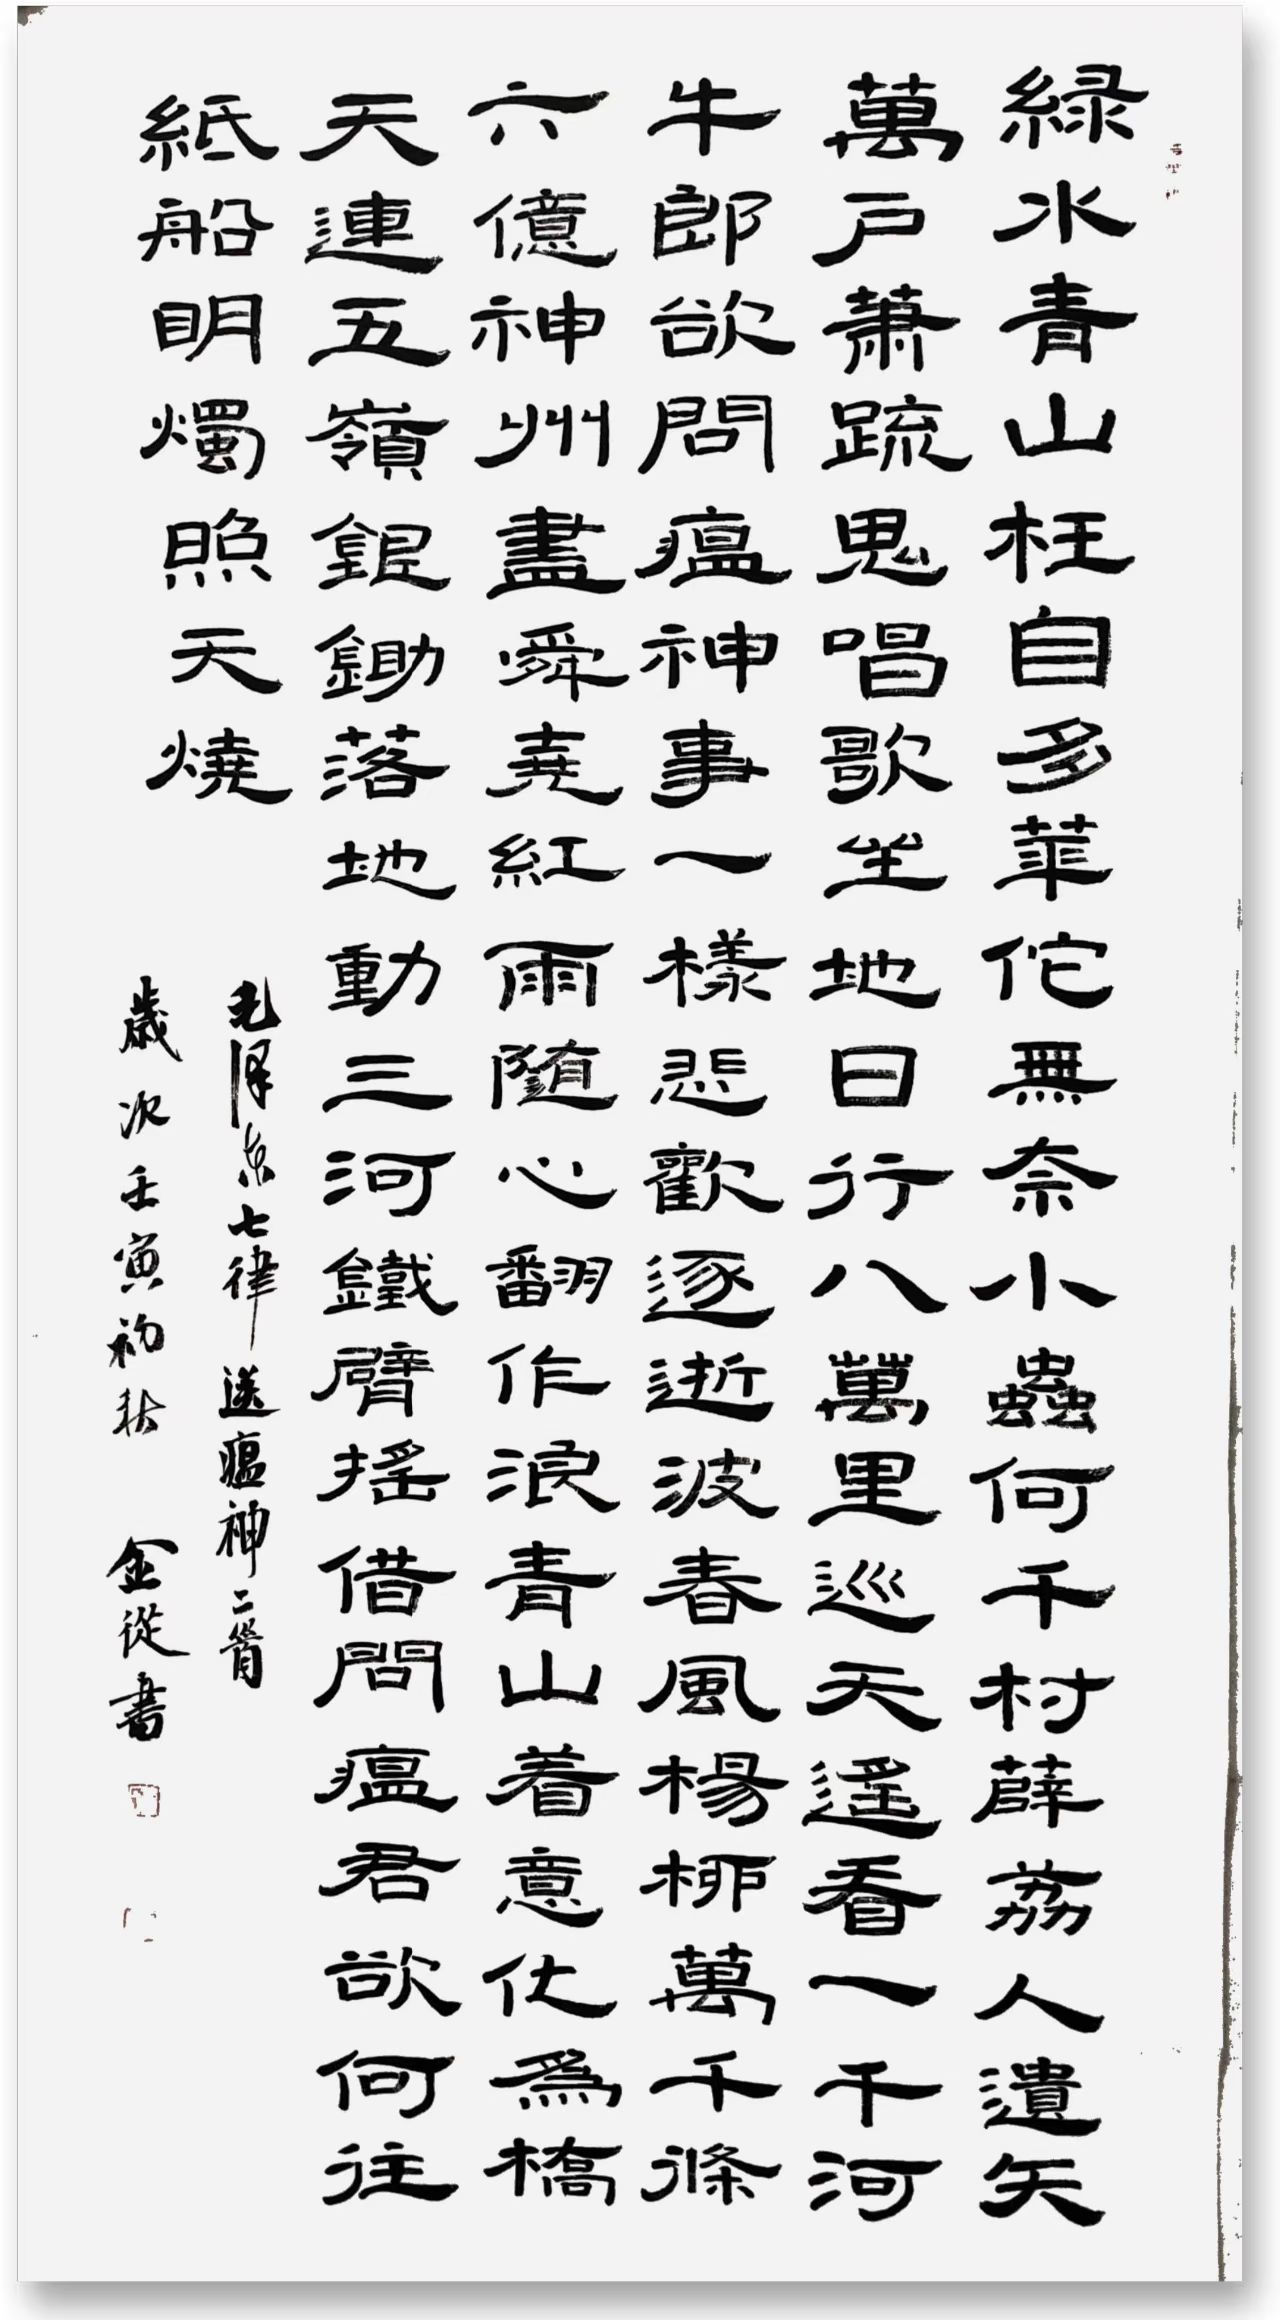 緑水青山枉自多華佗無奈小蟲何千村薜荔人遺矢
萬戶蕭疏鬼唱歌坐地日行八萬里巡天遥看一千河
牛郎欲問瘟神事一樣悲歡逐逝波春風楊柳萬千條
六億神州盡舜堯紅雨随心翻作浪青山着意化為橋
天連五嶺銀鋤落地動三河鐵臂搖借問瘟君欲何往
紙船明燭照天燒
毛澤东七律送瘟神二首
歲次壬寅初秋 金從書